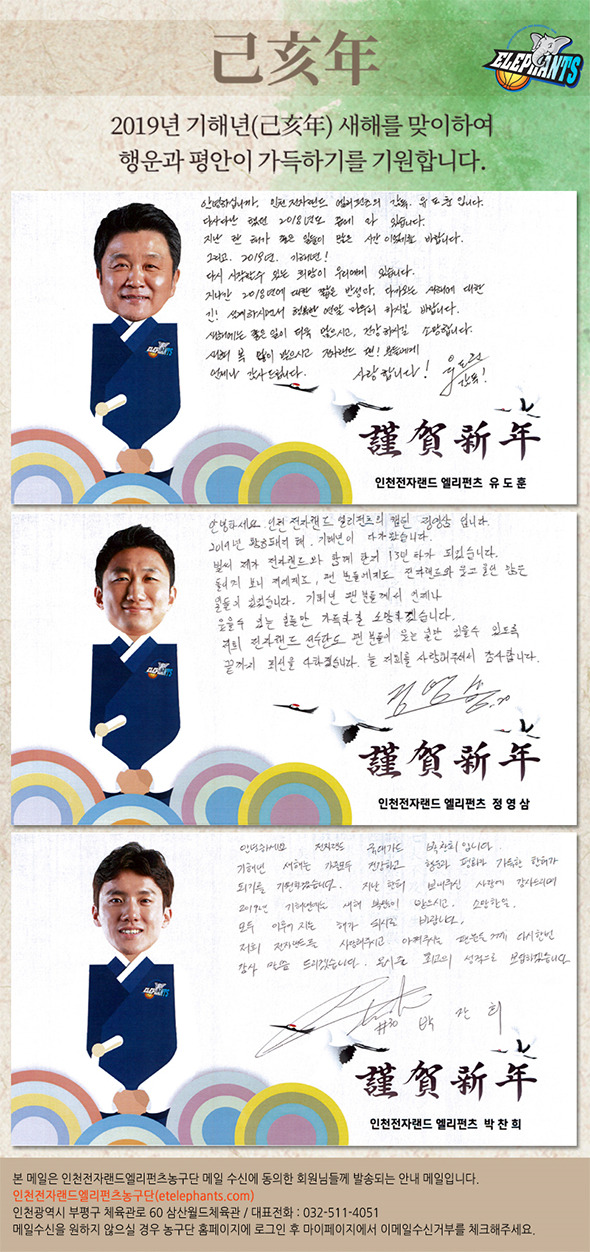 己亥年
ELEPHANTS
2019년 기해년(己亥年) 새해를 맞이하여
행운과 평안이 가득하기를 기원합니다.
안녕하십니까. 인천 전자랜드 엘리펀츠의 감독. 유도훈입니다.
다사다난 했던 2018년도 끝에 와 있습니다.
지난 한 해가 좋은 일들이 많은 시간이었기를 바랍니다.
그리고. 2019년. 기해년!
다시 시작할수 있는 희망이 우리에게 있습니다.
지나간 2018년에 대한 짧은 반성과, 다가오는 새해에 대한
긴! 설계하시면서 행복한 연말 마무리 하시길 바랍니다.
새해에는 좋은일이 더욱 많으시고, 건강하시길 소망합니다.
새해 복 많이 받으시고 전자랜드 팬! 분들에게
언제나 감사드립니다. 사랑합니다!
감독!
謹賀新年
인천전자랜드 엘리펀츠 유도훈
안녕하세요 인천 전자랜드 엘리펀츠의 캡틴 정영삼 입니다.
2019년 황금돼지 해, 기해년이 다가왔습니다.
벌써 제가 전자랜드와 함께 한지 13년 차가 되었습니다.
돌이켜 보니 저에게도, 팬 분들에게도 전자랜드와 웃고 울던 많은
일들이 있었습니다. 기해년 팬분들께서 언제나
웃을수 있는 일들만 가득하길 소망하겠습니다.
저희 전자랜드 선수단도 팬 분들이 웃는 일만 있을수 있도록
끝까지 최선을 다하겠습니다. 늘 저희를 사랑해주셔서 감사합니다.
정영삼
謹賀新年
인천전자랜드 엘리펀츠 정영삼
안녕하세요 전자랜드 박찬희입니다.
기해년 새해는 가족모두 건강하고 행운과 평화가 가득한 한해가
되기를 기원하겠습니다. 지난 한해 보내주신 사랑에 감사드리며
2019년 기해년에도 새해 복많이 받으시고, 소망하는일
모두 이루어지는 해가 되시길 바랍니다.
저희 전자랜드를 사랑해주시고 아껴주시는 팬분들께 다시한번
감사 말씀 드리겠습니다. 최고의 성적으로 보답하겠습니다
#30 박찬희
謹賀新年
인천전자랜드 엘리펀츠 박찬희
본 메일은 인천전자랜드엘리펀츠농구단 메일 수신에 동의한 회원님들께 발송되는 안내 메일입니다.
인천전자랜드엘리펀츠농구단(etelephants.com)
인천광역시 부평구 체육관로 60 삼산월드체육관 / 대표전화 : 032-511-4051
메일수신을 원하지 않으실 경우 농구단 홈페이지에 로그인 후 마이페이지에서 이메일수신거부를 체크해주세요.